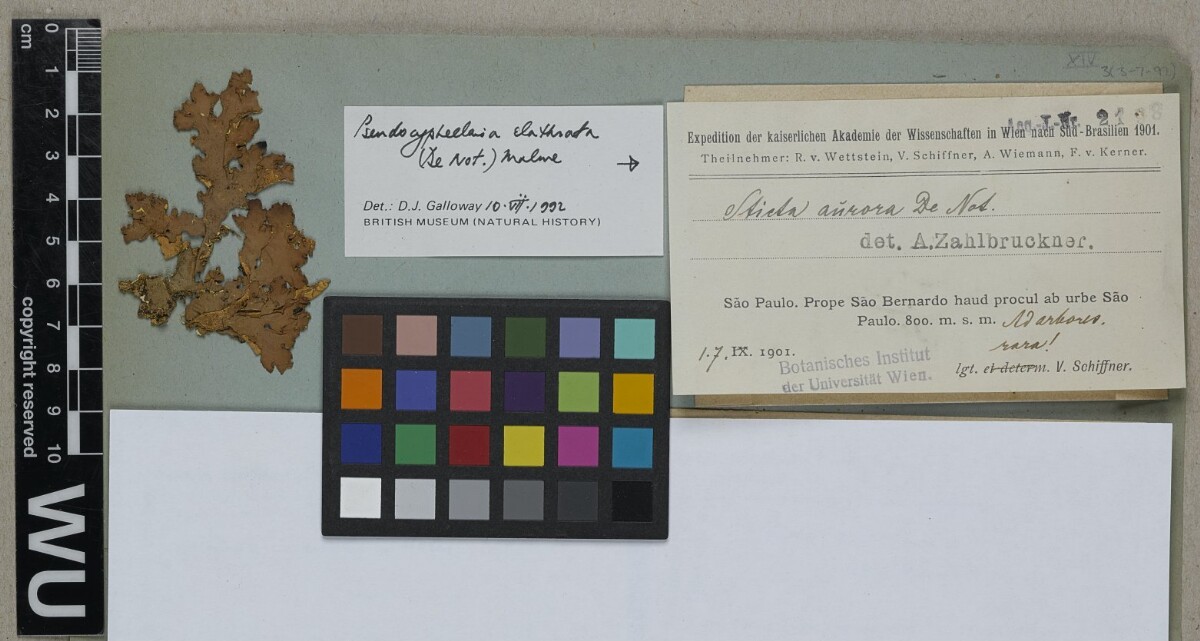 0
cm
1
2
3
4
5
6
7
8
9
10
copyright reserved
WU
XIV
Pseudocyphellaria clathrata
(De Not.) Malme →
Det.: D.J. Galloway 10.VII.1992
BRITISH MUSEUM (NATURAL HISTORY)
Expedition der kaiserlichen Akademie der Wissenschaften in Wien nach Süd-Brasilien 1901.
Theilnehmer: R. v. Wettstein, V. Schiffner, A. Wiemann, F. v. Kerner.
Sticta aurora De Not.
det. A. Zahlbruckner.
São Paulo. Prope São Bernardo haud procul ab urbe São
Paulo. 800. m. s. m. Ad arbores.
rara!
1.7. IX. 1901.
Botanisches Institut
der Universität Wien.
lgt. et determ. V. Schiffner.